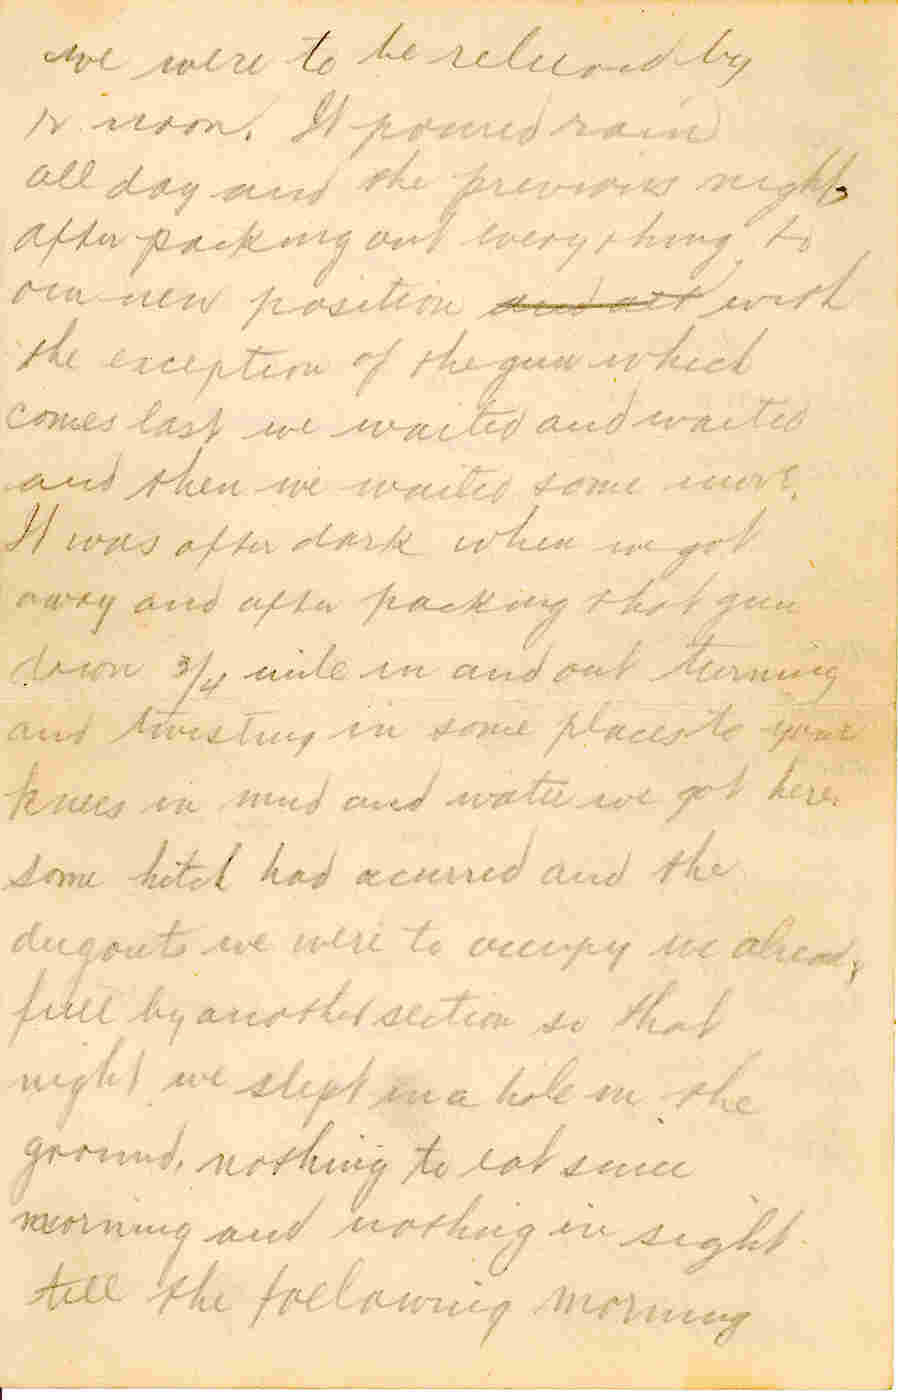 we were to be relieved by
12 noon. It poured rain
all day and the previous night,
after packing out everything to
our new position and all with
the exception of the gun which
comes last we waited and waited
and then we waited some more.
It was after dark when we got
away and after packing that gun
down 3/4 mile in and out turning
and twisting in some places to your
knees in mud and water we got here.
some hitch had acurred and the
dugouts we were to occupy we already
full by another section so that
night we slept in a hole in the
ground, nothing to eat since
morning and nothing in sight
till the following morning